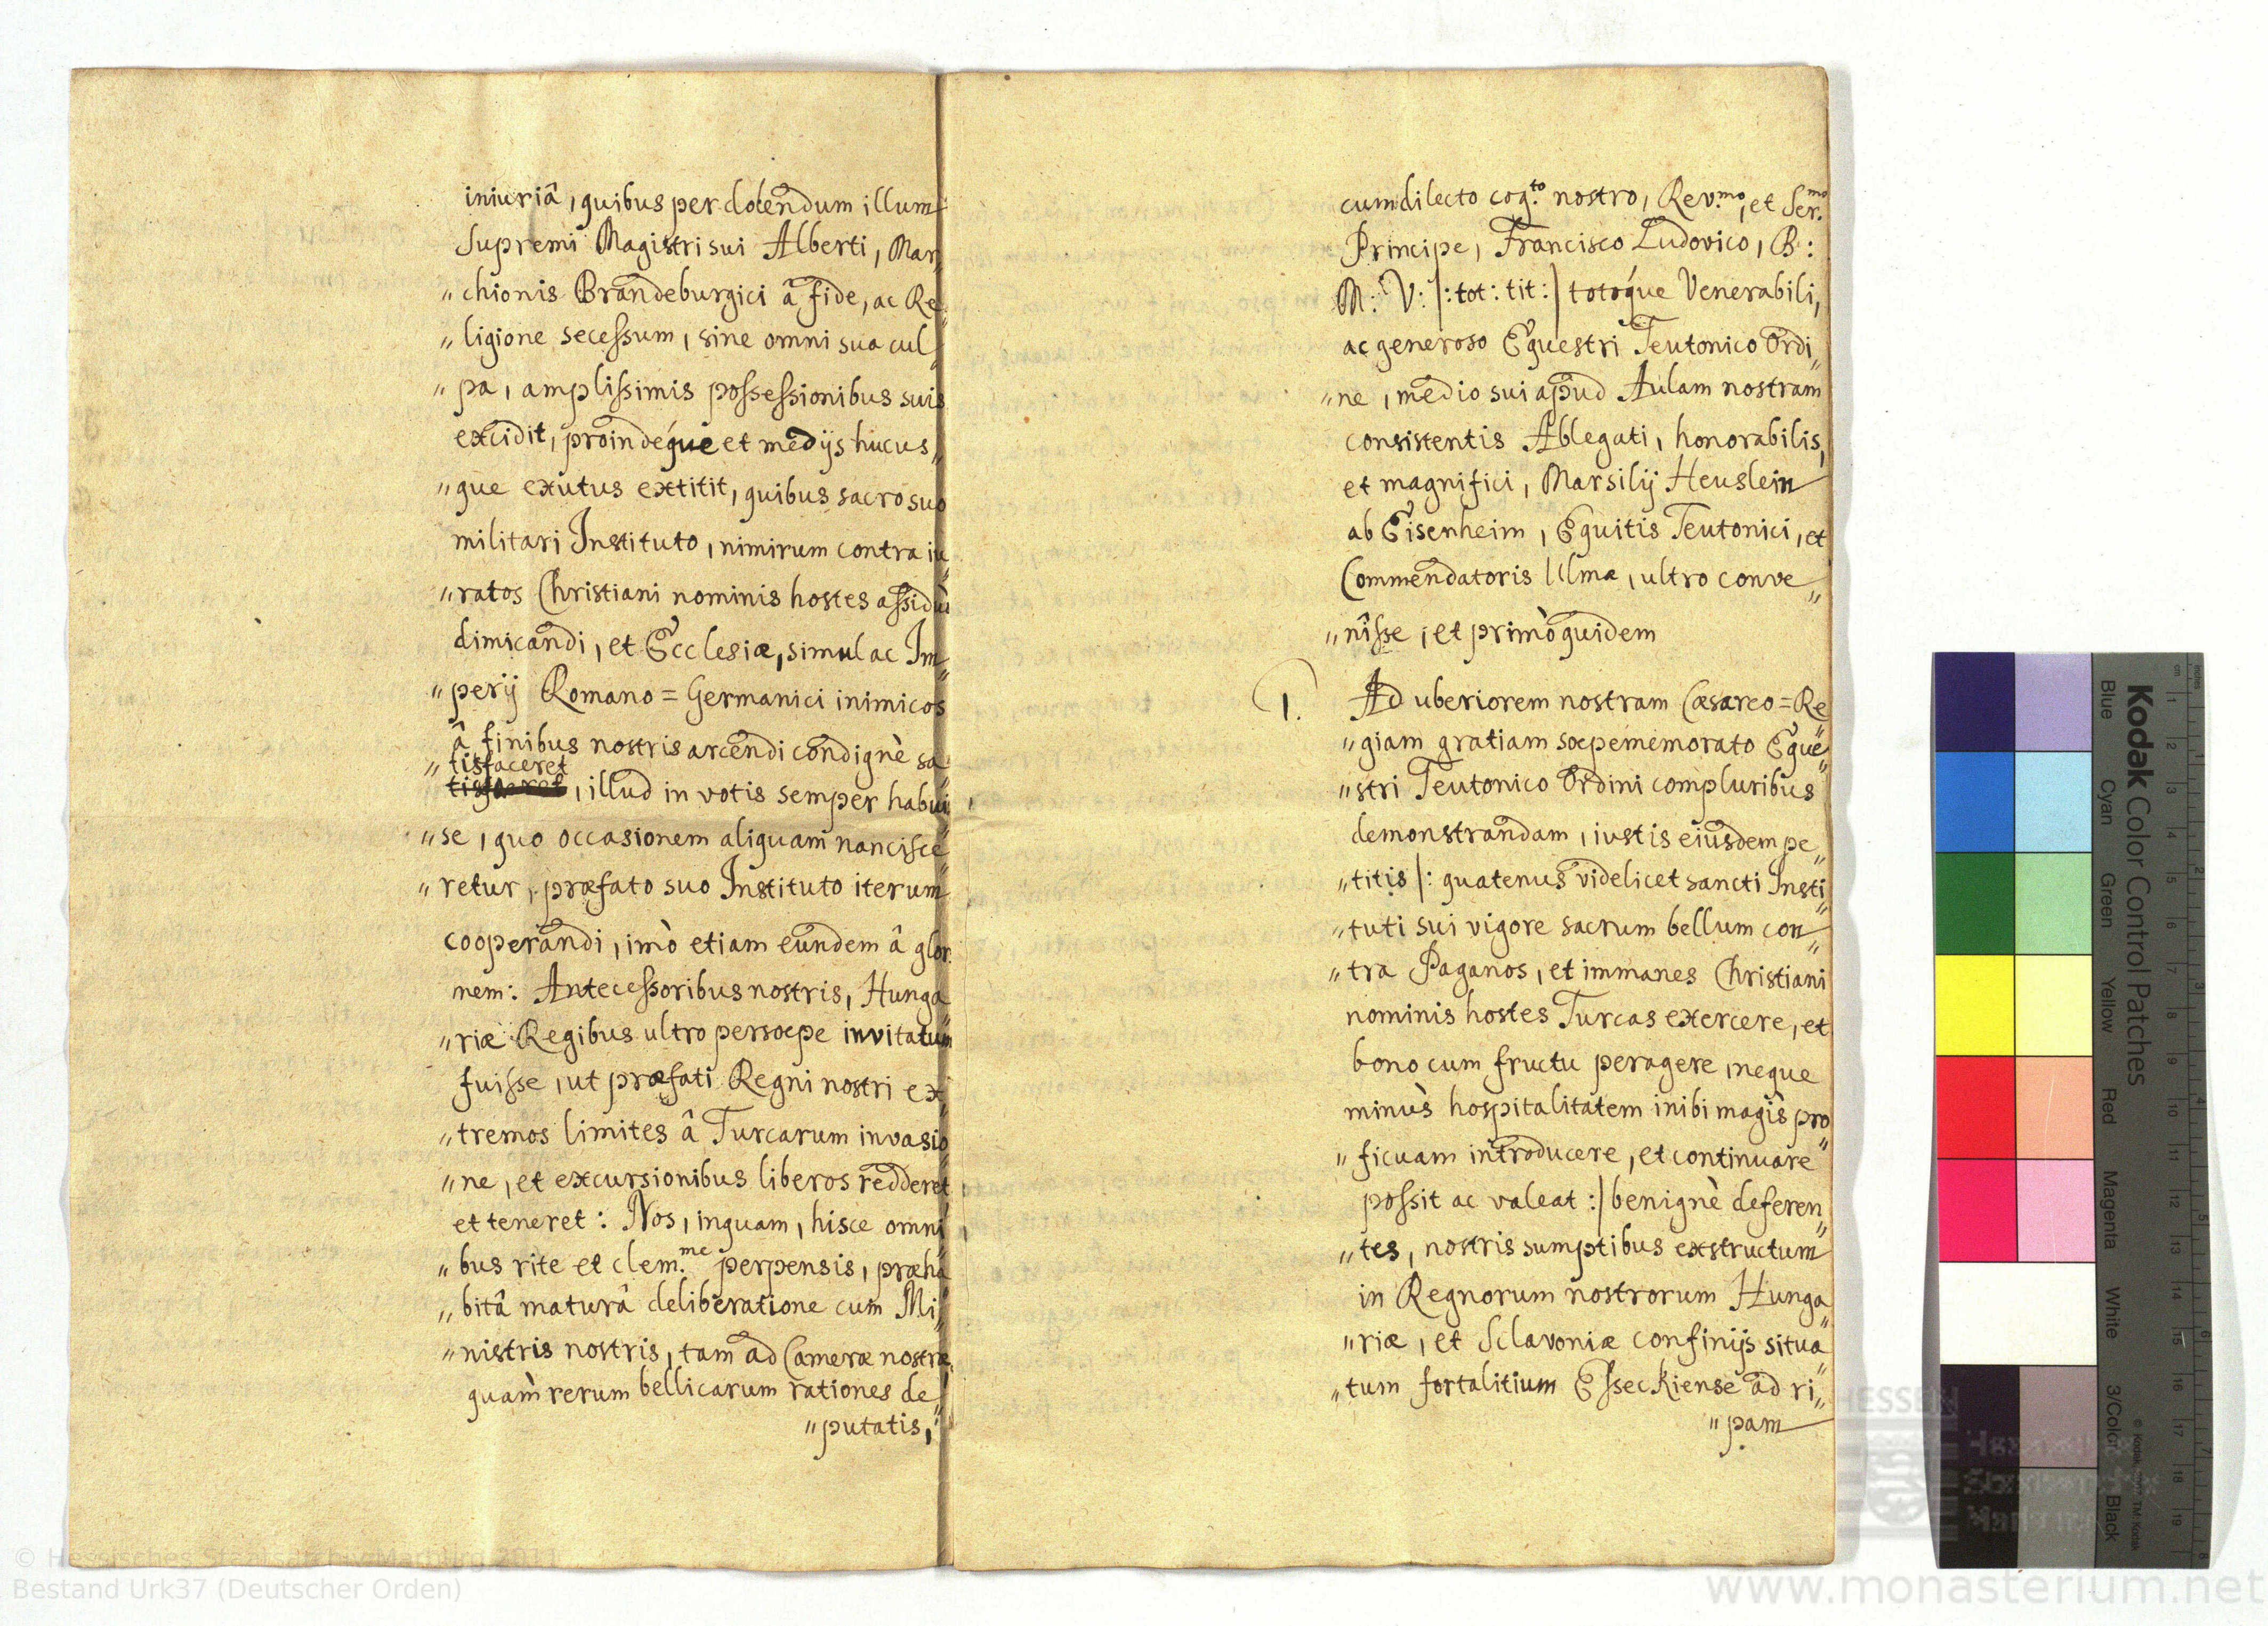 iniuriâ, quibus per dolendum illum
Supremi Magistri sui Alberti, Mar„
„chionis Brandeburgici â fide, ac Re„
„ligione secessum, sine omni sua cul„
„pa, amplissimis possessionibus suis
excidit, proindeque et medijs hucus„
„que exutus extitit, quibus sacro suo
militari Instituto, nimirum contra iu„
„ratos Christiani nominis hostes assiduè
dimicandi, et Ecclesiæ, simul ac Im„
„perij Romano=Germanici inimicos
â finibus nostris arcendi condignè sa„
„tisfaceret
, illud in votis semper habuis„
„se, quo occasionem aliquam nancisce„
„retur, præfato suo Instituto iterum
cooperandi, imò etiam eundem â glor:
nem: Antecessoribus nostris, Hunga„
„riæ Regibus ultro persæpe invitatum
fuisse, ut præfati Regni nostri ex„
„tremos limites â Turcarum invasio„
„ne, et excursionibus liberos redderet
et teneret: Nos, inquam, hisce omni„
„bus rite et clem.me perpensis, præha„
„bitâ maturâ deliberatione cum Mi„
„nistris nostris, tam ad Cameræ nostræ,
quàm rerum bellicarum rationes de„
„putatis,
cum dilecto cog.to nostro, Rev.mo, et Ser.mo
Principe, Francisco Ludovico, B:
M: V: |:tot: tit:| totoque Venerabili,
ac generoso Equestri Teutonico Ordi„
„ne, medio sui apud Aulam nostram
consistentis Ablegati, honorabilis,
et magnifici, Marsilij Heuslein
ab Eisenheim, Equitis Teutonici, et
Commendatoris Ulmæ, ultro conve„
„nisse, et primò quidem
1. Ad uberiorem nostram Cæsareo=Re„
„giam gratiam sæpememorato Eque„
„stri Teutonico Ordini compluribus
demonstrandam, iustis eiusdem pe„
„titis |: quatenus videlicet sancti Insti„
„tuti sui vigore sacrum bellum con„
„tra Paganos, et immanes Christiani
nominis hostes Turcas exercere, et
bono cum fructu peragere, neque
minùs hospitalitatem inibi magis pro„
„ficuam introducere, et continuare
possit ac valeat :| benignè deferen„
„tes, nostris sumptibus exstructum
in Regnorum nostrorum Hunga„
„riæ, et Sclavoniæ confinijs situa„
„tum fortalitium Esseckiense ad ri„
„pam
Kodak Color Control Patches
Blue Cyan Green Yellow Red Magenta White 3/Color Black
© Hessisches Staatsarchiv Marburg 2011
Bestand Urk37 (Deutscher Orden)
HESSEN
www.monasterium.net